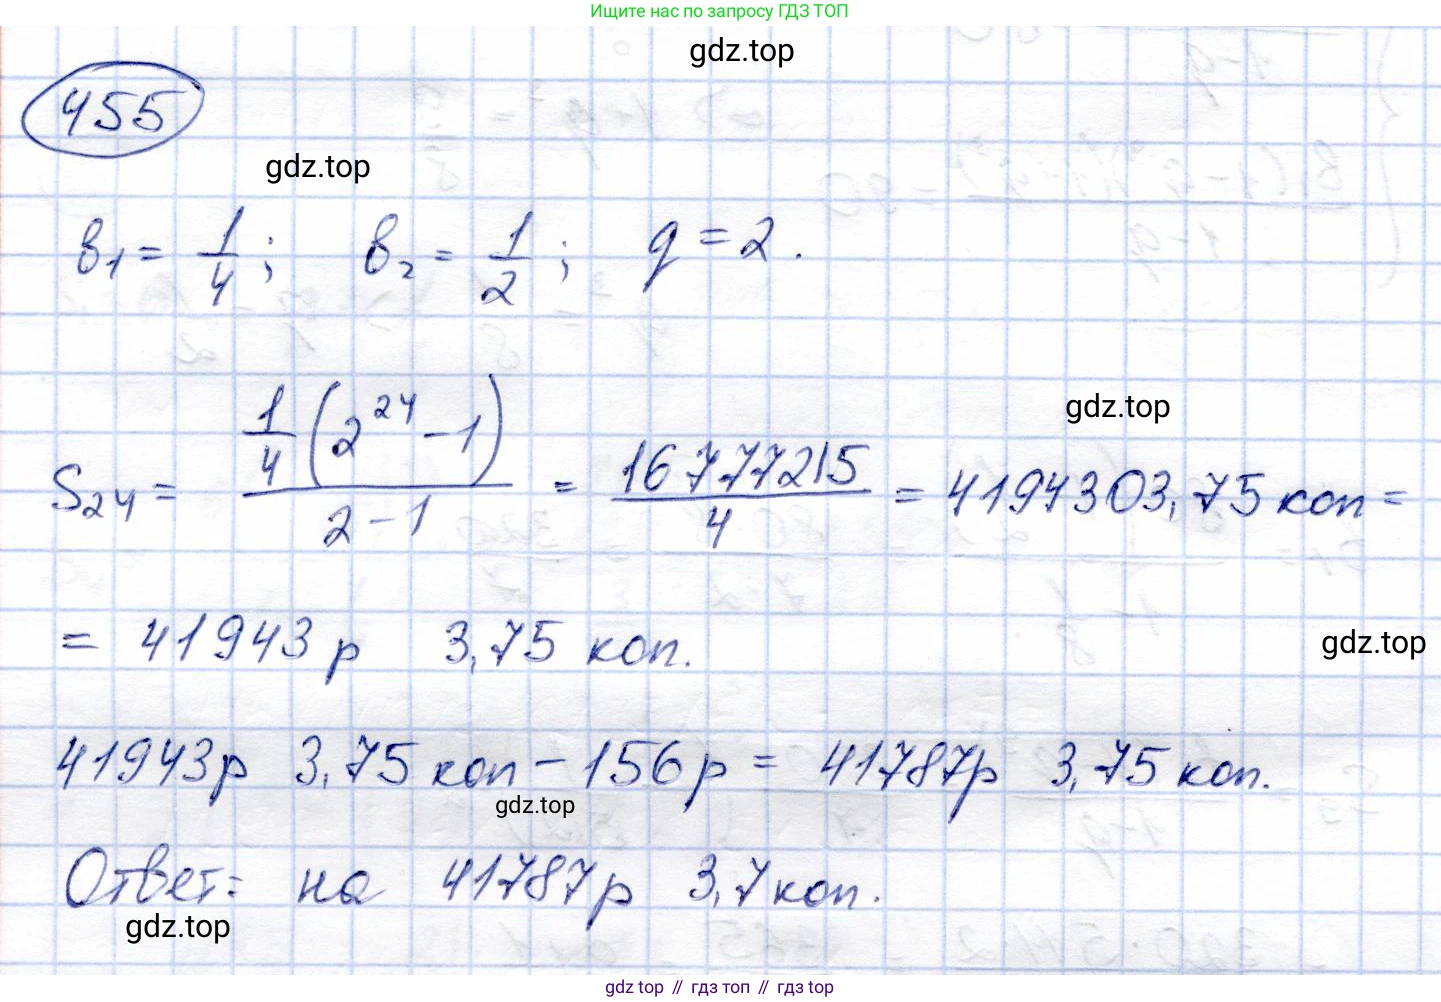 Ищите нас по запросу ГДЗ ТОП
gdz.top
455
gdz.top
b₁ = 1/4 ; b₂ = 1/2 ; q = 2.
gdz.top
S₂₄ = (1/4 (2²⁴ - 1))/(2 - 1) = 16777215/4 = 4194303,75 коп =
= 41943 р 3,75 коп.
gdz.top
41943р 3,75 коп - 156р = 41787р 3,75 коп.
gdz.top
Ответ: на 41787р 3,7 коп.
gdz.top
gdz top // гдз топ // gdz top